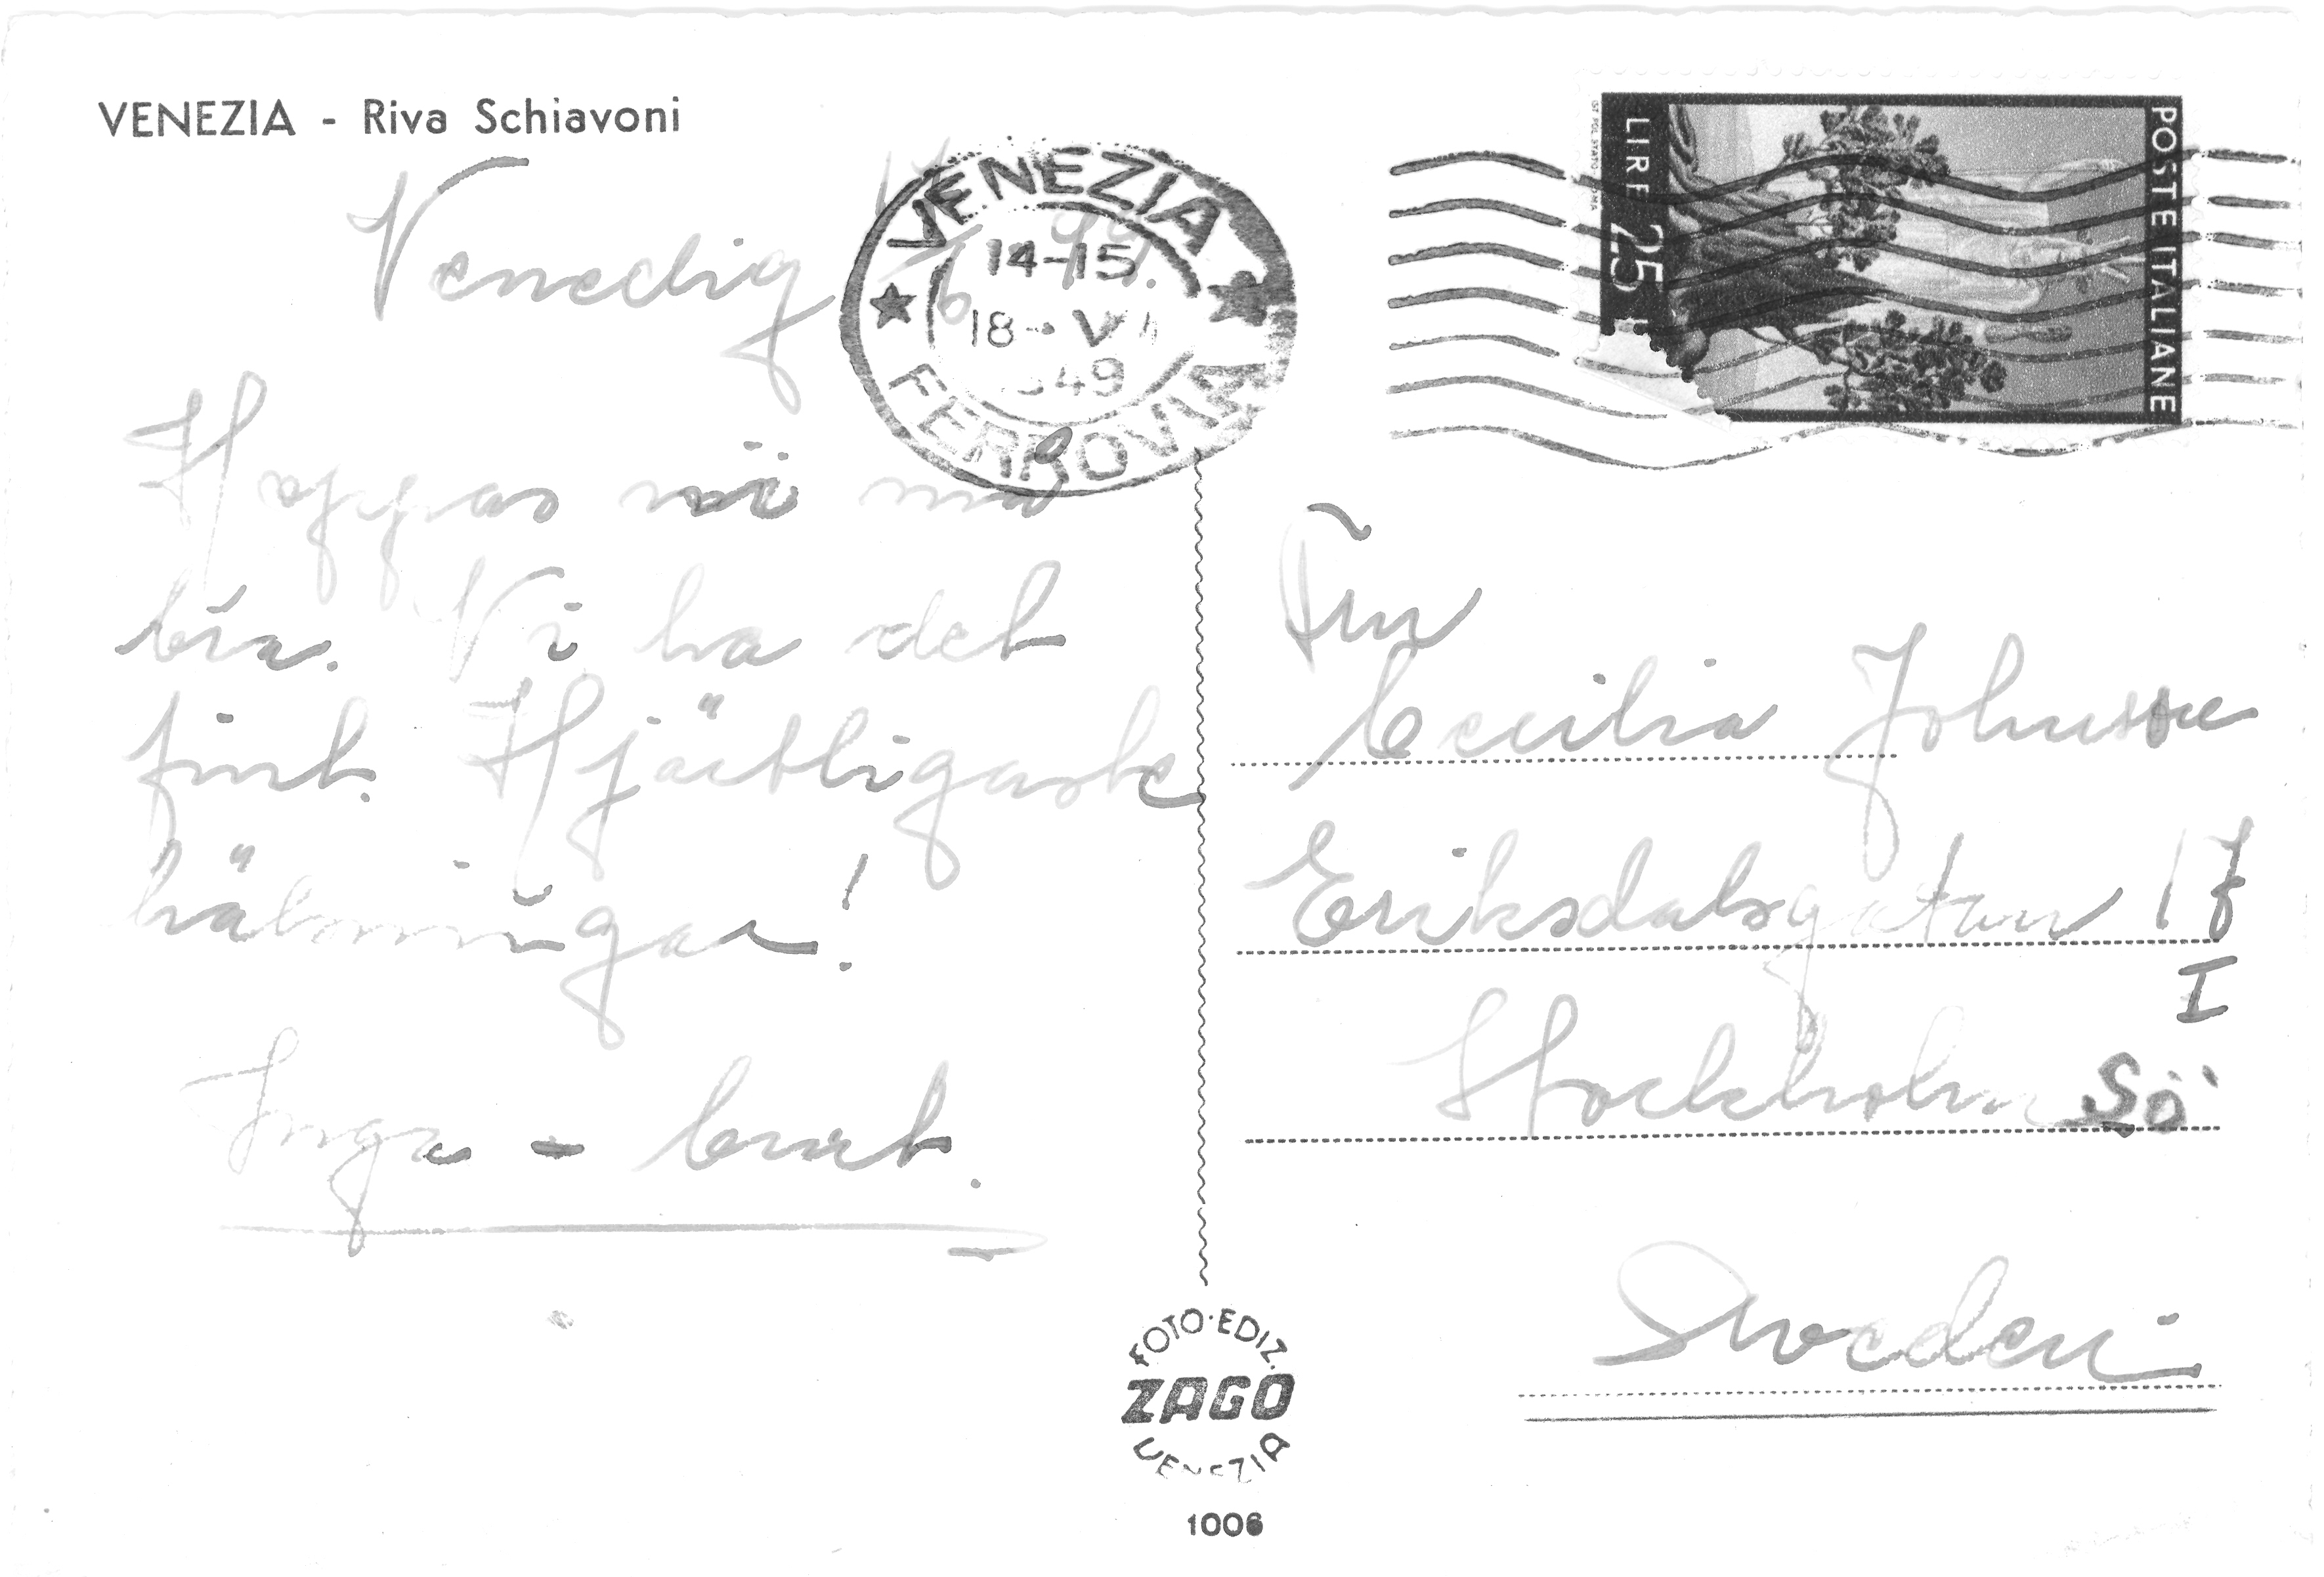 VENEZIA - Riva Schiavoni
Venedig
Hoppas ni må
bra. Vi ha det
fint. Hjärtligaste
hälsningar!
Inga - Britt.
VENEZIA
14-15
18 - VI
1949
FERROVIA
LIRE 25
POSTE ITALIANE
Fru
Cecilia Johnson
Eriksdalsgatan 17
I
Stockholm Sö
Sweden
FOTO·EDIZ.
ZAGO
VENEZIA
1006